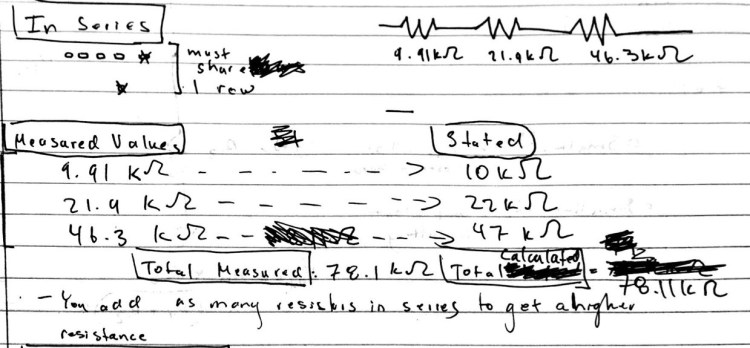 In Series
must
share
1 row
9.91kΩ 21.9kΩ 46.3kΩ
Measured Values Stated
9.91 kΩ - - - - - > 10kΩ
21.9 kΩ - - - - - -> 22kΩ
46.3 kΩ - - - - -> 47kΩ
Total Measured: 78.1 kΩ Total Calculated = 78.11kΩ
- You add as many resistors in series to get a higher
resistance